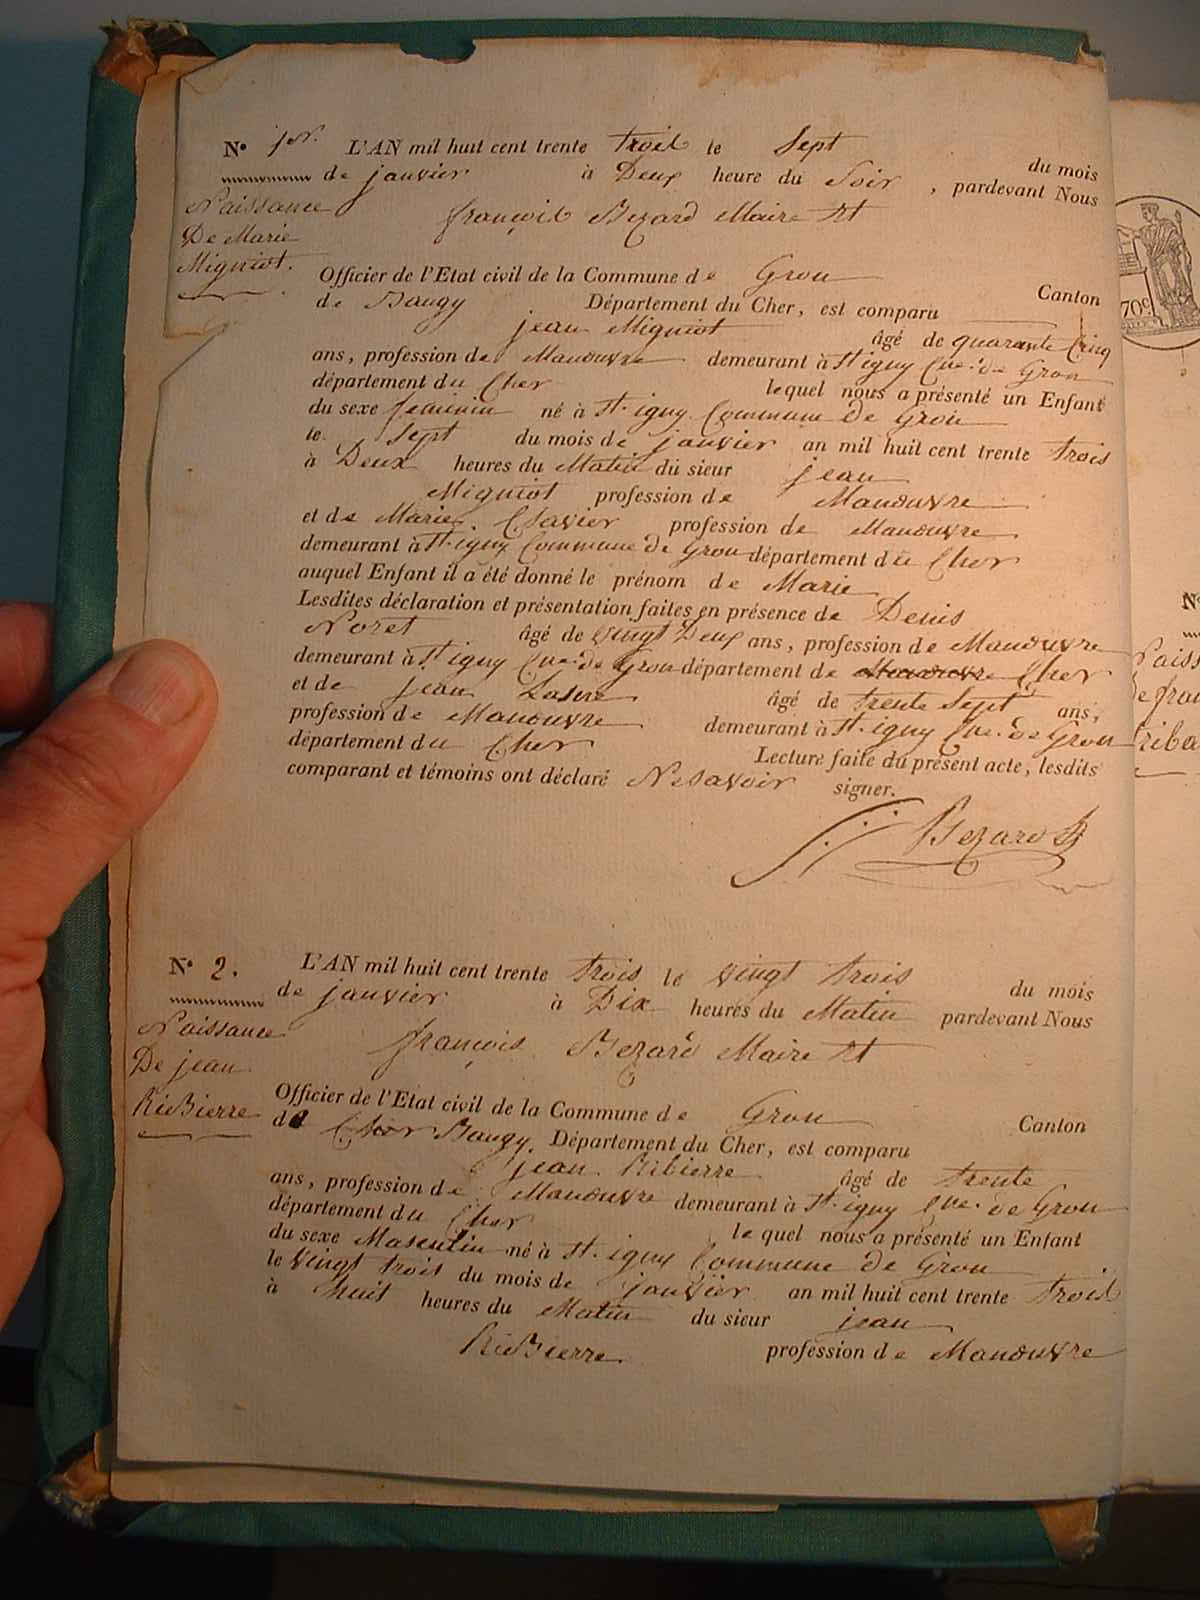 N° 1er. L'AN mil huit cent trente trois le Sept du mois
de janvier à Deux heure du Soir, pardevant Nous
Naissance
De Marie
Migniot.
françois Bezard Maire Et
Officier de l'Etat civil de la Commune de Gron Canton
de Baugy Département du Cher, est comparu
jean Migniot âgé de quarante Cinq
ans, profession de Manouvre demeurant à St. igny Cne. de Gron
département du Cher lequel nous a présenté un Enfant
du sexe feminin né à St. igny Commune de Gron
le Sept du mois de janvier an mil huit cent trente trois
à Deux heures du Matin du sieur jean
Migniot profession de Manouvre
et de Marie profession de Manouvre
demeurant à St. igny Commune de Gron département du Cher
auquel Enfant il a été donné le prénom de Marie
Lesdites déclaration et présentation faites en présence de Denis
Noret âgé de vingt Deux ans, profession de Manouvre
demeurant à St igny Cne. de Gron département de Manouvre Cher
et de jean âgé de trente Sept ans,
profession de Manouvre demeurant à St. igny Cne. de Gron
département du Cher Lecture faite du présent acte, lesdits
comparant et témoins ont déclaré Ne savoir signer.
Bezard
N° 2. L'AN mil huit cent trente trois le vingt trois du mois
de janvier à Dix heures du Matin pardevant Nous
Naissance
De jean
RiBierre
françois Bezard Maire Et
Officier de l'Etat civil de la Commune de Gron Canton
de Cher Baugy. Département du Cher, est comparu
jean Ribierre âgé de trente
ans, profession de Manouvre demeurant à St. igny Cne. de Gron
département du Cher lequel nous a présenté un Enfant
du sexe Masculin né à St. igny Commune de Gron
le Vingt trois du mois de janvier an mil huit cent trente trois
à huit heures du Matin du sieur jean
RiBierre profession de Manouvre
70c